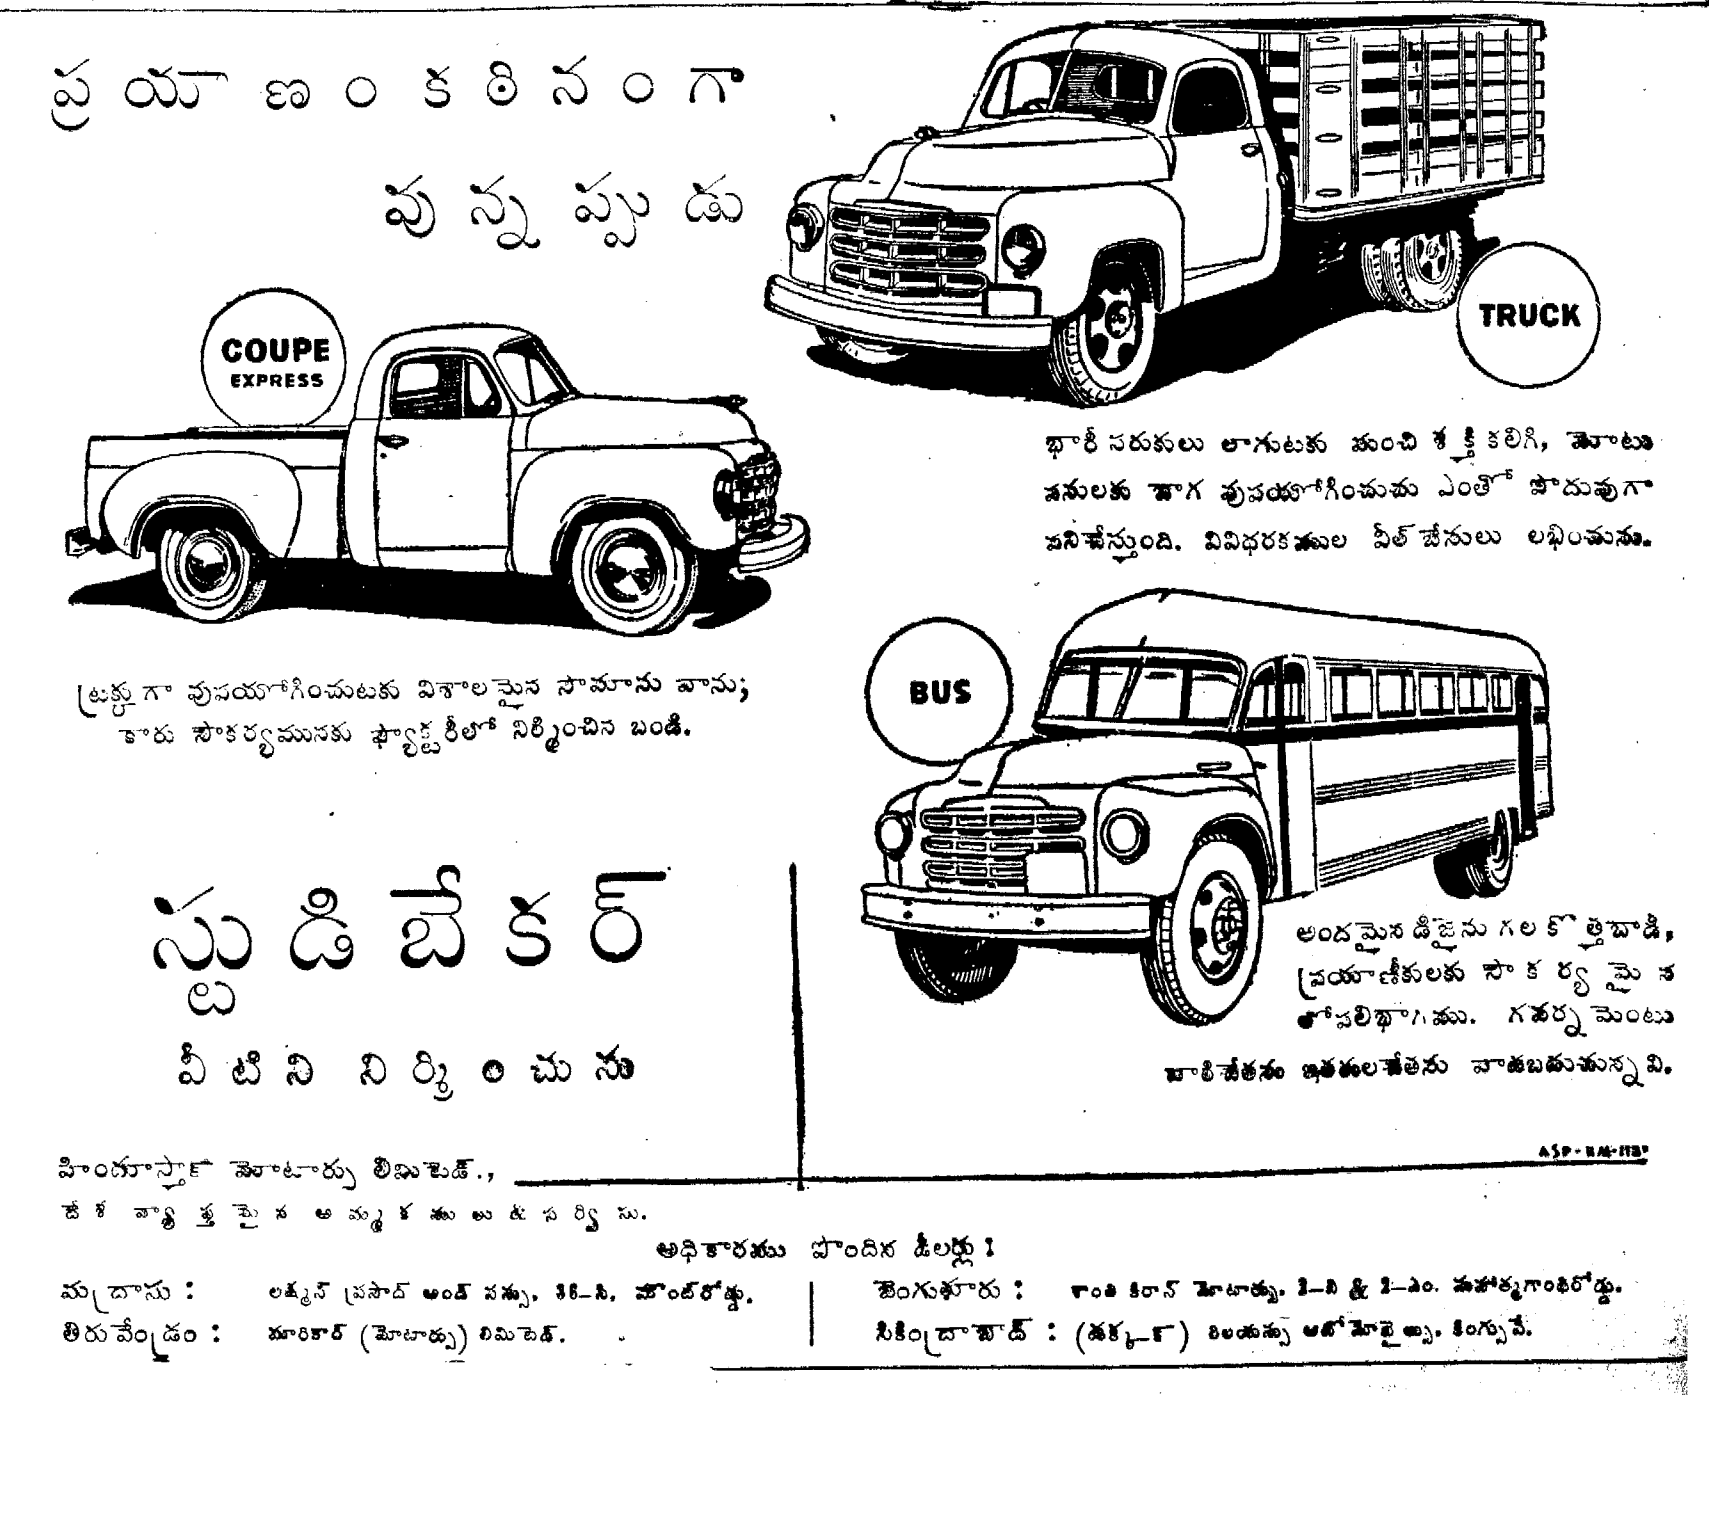 ప్రయాణం కఠినంగా
వున్నప్పుడు
TRUCK
COUPE
EXPRESS
భారీ సరుకులు లాగుటకు మంచి శక్తి కలిగి, మోటు
పనులకు బాగ వుపయోగించుచు ఎంతో పొదువుగా
పనిచేస్తుంది. వివిధరకముల వీల్ బేసులు లభించును.
ట్రక్కుగా వుపయోగించుటకు విశాలమైన సామాను వాను;
కారు సౌకర్యమునకు ఫ్యాక్టరీలో నిర్మించిన బండి.
BUS
అందమైన డిజైను గల కొత్తబాడీ,
ప్రయాణీకులకు సౌకర్యమైన
లోపలిభాగము. గవర్నమెంటు
వారిచేతను ఇతరులచేతను వాడబడుచున్నవి.
స్టుడిబేకర్
వీటిని నిర్మించును
హిందూస్తాన్ మోటార్సు లిమిటెడ్.,
దేశ వ్యాప్తమైన అమ్మకములు & సర్విసు.
అధికారము పొందిన డీలర్లు:
మద్రాసు: లక్ష్మన్ ప్రసాద్ అండ్ సన్సు, మౌంట్‌రోడ్డు.
బెంగుళూరు: కాంతి కిరాన్ మోటార్సు, మహాత్మగాంధిరోడ్డు.
తిరువేండ్రం: మారికార్ (మోటార్సు) లిమిటెడ్.
సికింద్రాబాద్: (డక్కన్) రిలయన్సు ఆటోమోబైల్సు, కింగ్సువే.